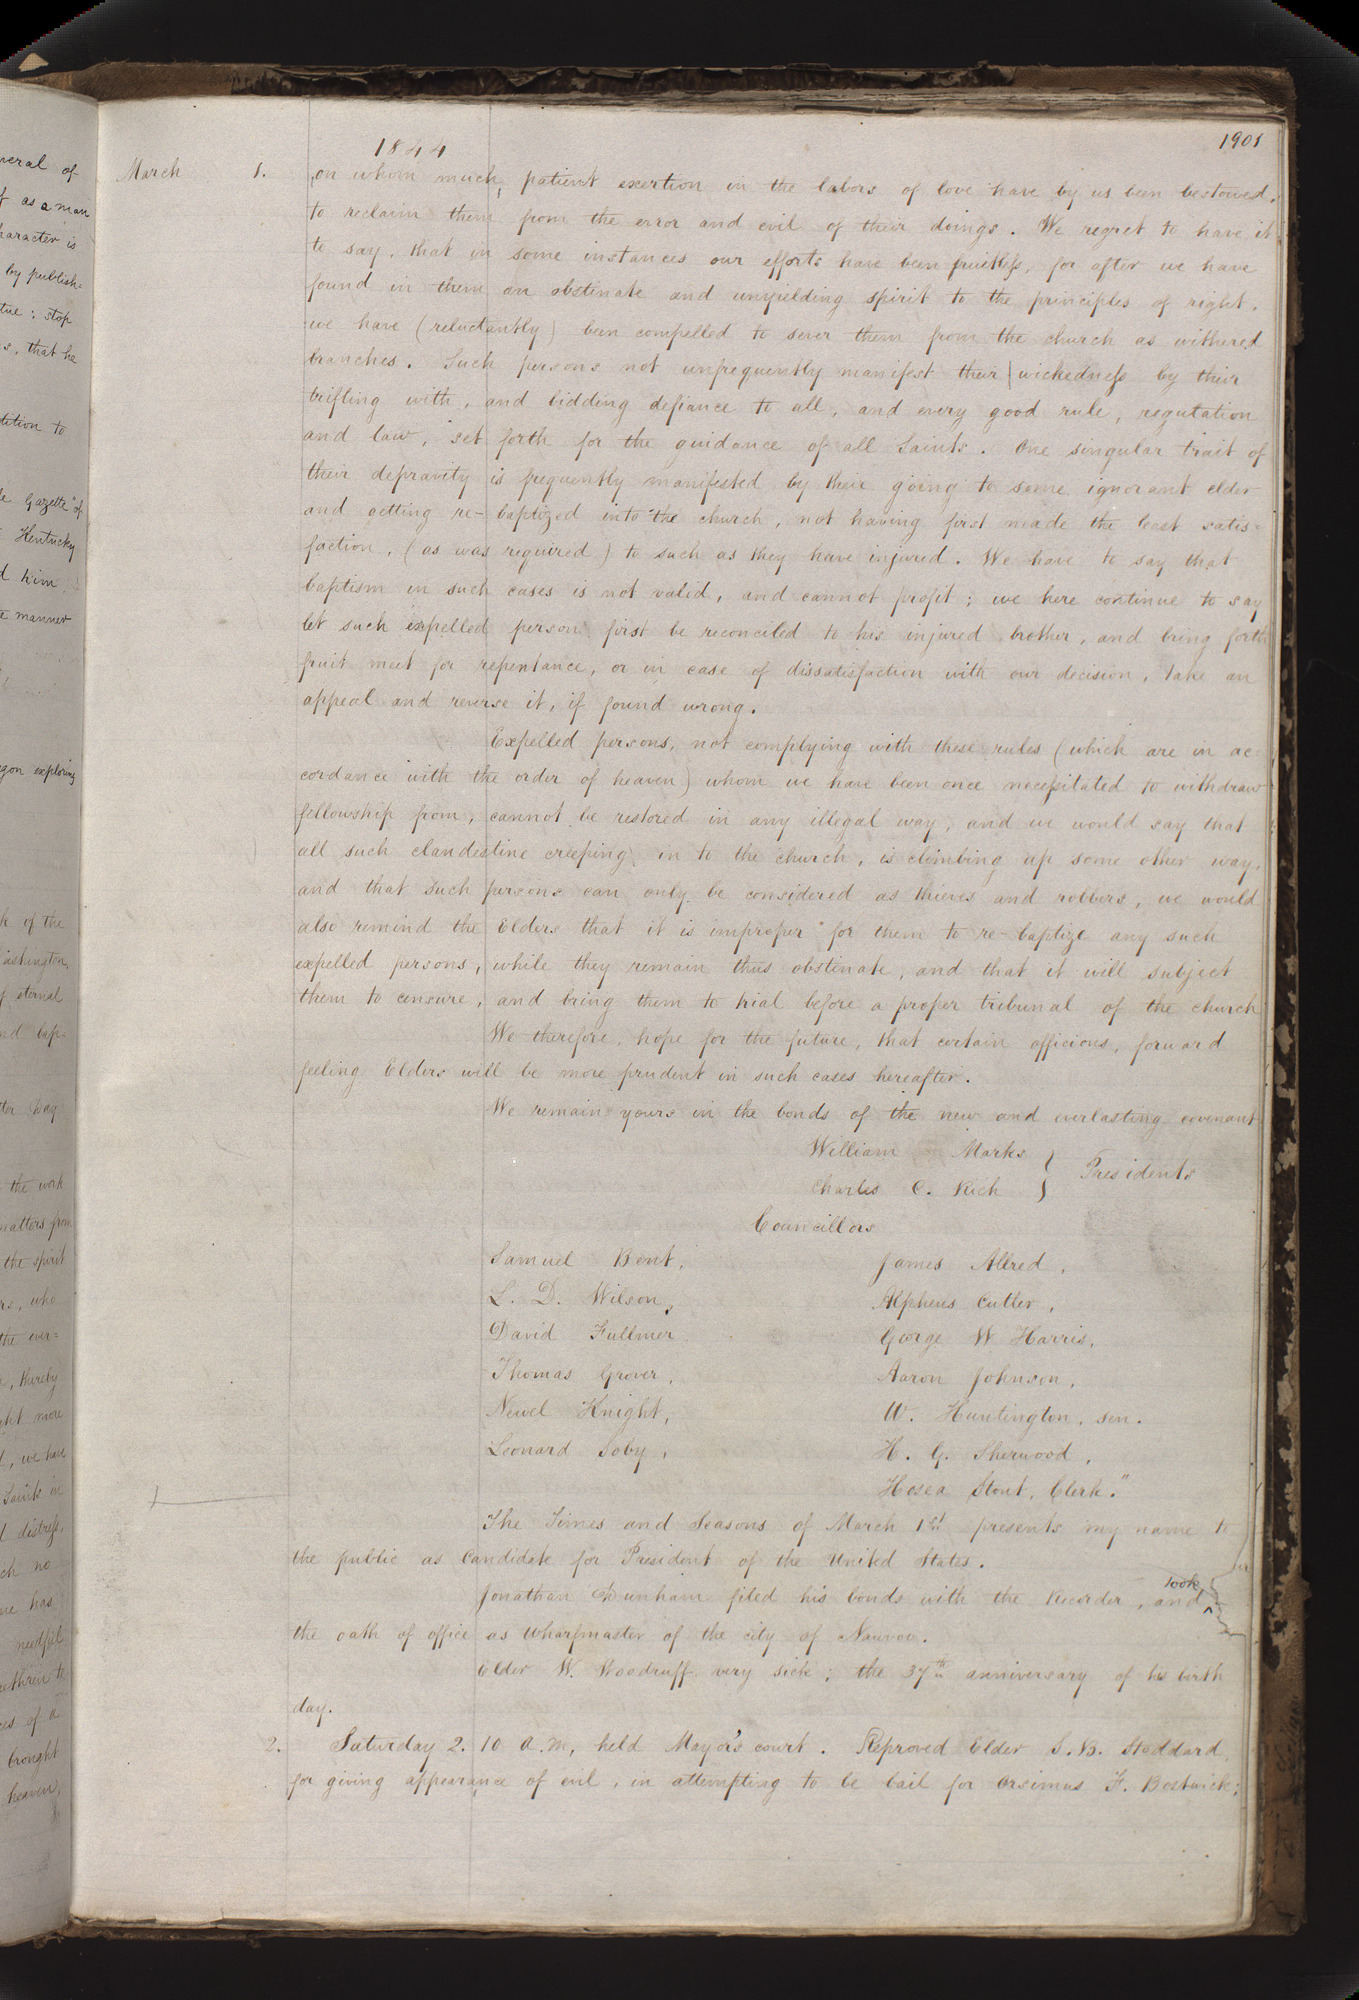 1901
1844
March 1. on whom much, patient exertion in the labors of love have by us been bestowed,
to reclaim them from the error and evil of their doings. We regret to have it
to say, that in some instances our efforts have been fruitless, for after we have
found in them an obstinate and unyielding spirit to the principles of right,
we have (reluctantly) been compelled to sever them from the church as withered
branches. Such persons not unfrequently manifest their wickedness by their
trifling with, and bidding defiance to all, and every good rule, regulation
and law, set forth for the guidance of all Saints. One singular trait of
their depravity is frequently manifested by their going to some ignorant elder
and getting re-baptized into the church, not having first made the least satis=
faction, (as was required) to such as they have injured. We have to say that
baptism in such cases is not valid, and cannot profit; we here continue to say
let such expelled person first be reconciled to his injured brother, and bring forth
fruit meet for repentance, or in case of dissatisfaction with our decision, take an
appeal and reverse it, if found wrong.
Expelled persons, not complying with these rules (which are in ac=
cordance with the order of heaven) whom we have been once necessitated to withdraw
fellowship from, cannot be restored in any illegal way, and we would say that
all such clandestine creeping in to the church, is climbing up some other way,
and that such persons can only be considered as thieves and robbers, we would
also remind the Elders that it is improper for them to re-baptize any such
expelled persons, while they remain thus obstinate, and that it will subject
them to censure, and bring them to trial before a proper tribunal of the church
We therefore, hope for the future, that certain officious, forward
feeling Elders will be more prudent in such cases hereafter.
We remain yours in the bonds of the new and everlasting covenant
William Marks } Presidents
Charles C. Rich
Councillors
Samuel Bent, James Allred,
L. D. Wilson, Alpheus Cutler,
David Fullmer George W Harris,
Thomas Grover, Aaron Johnson,
Newel Knight, W. Huntington, sen.
Leonard Soby, H. G. Sherwood,
Hosea Stout, Clerk."
The Times and Seasons of March 1st presents my name to
the public as Candidate for President of the United States.
Jonathan Dunham filed his bonds with the Recorder, and ^took
the oath of office as Wharfmaster of the city of Nauvoo.
Elder W. Woodruff very sick; the 37th anniversary of his birth
day.
2. Saturday 2. 10 A.M, held Mayor's court. Reproved Elder S.B. Stoddard
for giving appearance of evil, in attempting to be bail for Orsimus F. Bostwick;